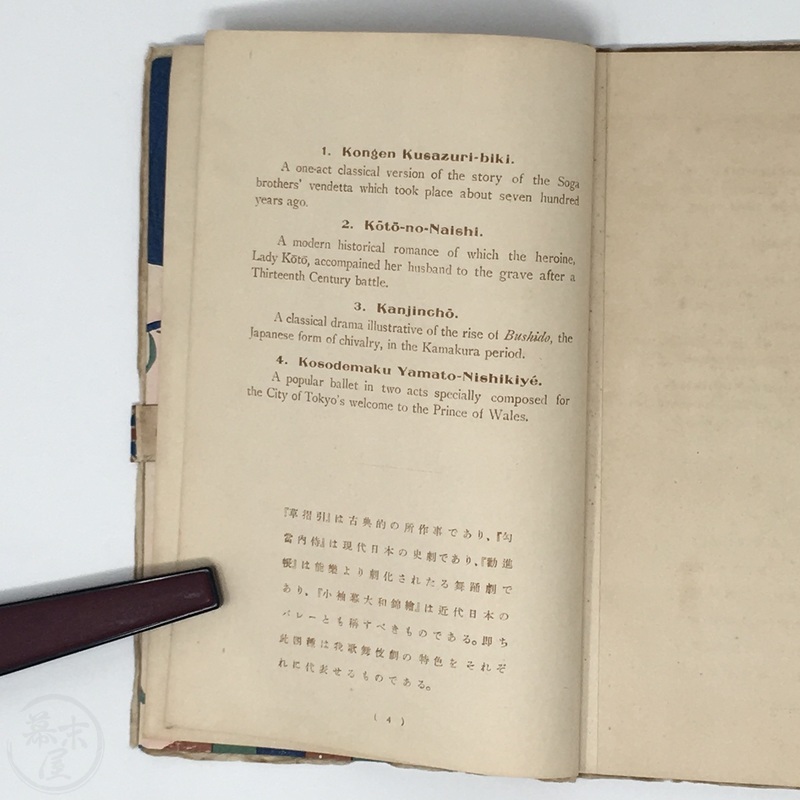 1. Kongen Kusazuri-biki.
A one-act classical version of the story of the Soga
brothers' vendetta which took place about seven hundred
years ago.
2. Kōtō-no-Naishi.
A modern historical romance of which the heroine,
Lady Kōtō, accompained her husband to the grave after a
Thirteenth Century battle.
3. Kanjinchō.
A classical drama illustrative of the rise of Bushido, the
Japanese form of chivalry, in the Kamakura period.
4. Kosodemaku Yamato-Nishikiyé.
A popular ballet in two acts specially composed for
the City of Tokyo's welcome to the Prince of Wales.
『草摺引』は古典的の所作事であり、『勾
當內侍』は現代日本の史劇であり、『勸進
帳』は能樂より劇化されたる舞踊劇で
あり、『小袖幕大和錦繪』は近代日本の
バレーとも稱すべきものである。卽ち
此四種は我歌舞伎劇の特色をそれぞ
れに代表せるものである。
( 4 )
幕末屋